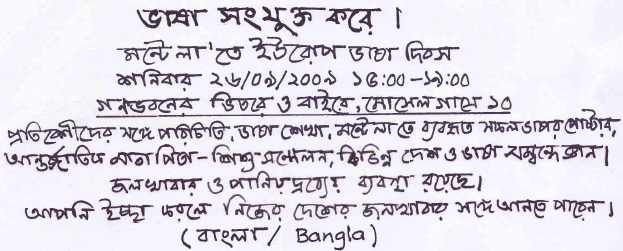 ভাষা সংযুক্ত করে।
মন্টেলা'তে ইউরোপ ভাষা দিবস
শনিবার ২৬/০৯/২০০৯ ১৫:০০-১৯:০০
গনভবনের ভিতরে ও বাইরে, মোসেল গাসে ১০
প্রতিবেশীদের সঙ্গে পরিচিতি, ভাষা শেখা, মন্টেলা তে ব্যবহৃত সকল ভাষার পোষ্টার,
আন্তর্জাতিক মাতা পিতা - শিশু সম্মেলন, বিভিন্ন দেশ ও ভাষা সম্বন্ধে জ্ঞান।
জলখাবার ও পানিয় দ্রব্যের ব্যবস্থা রয়েছে।
আপনি ইচ্ছা করলে নিজের দেশের জলখাবার সঙ্গে আনতে পারেন।
(বাংলা / Bangla)